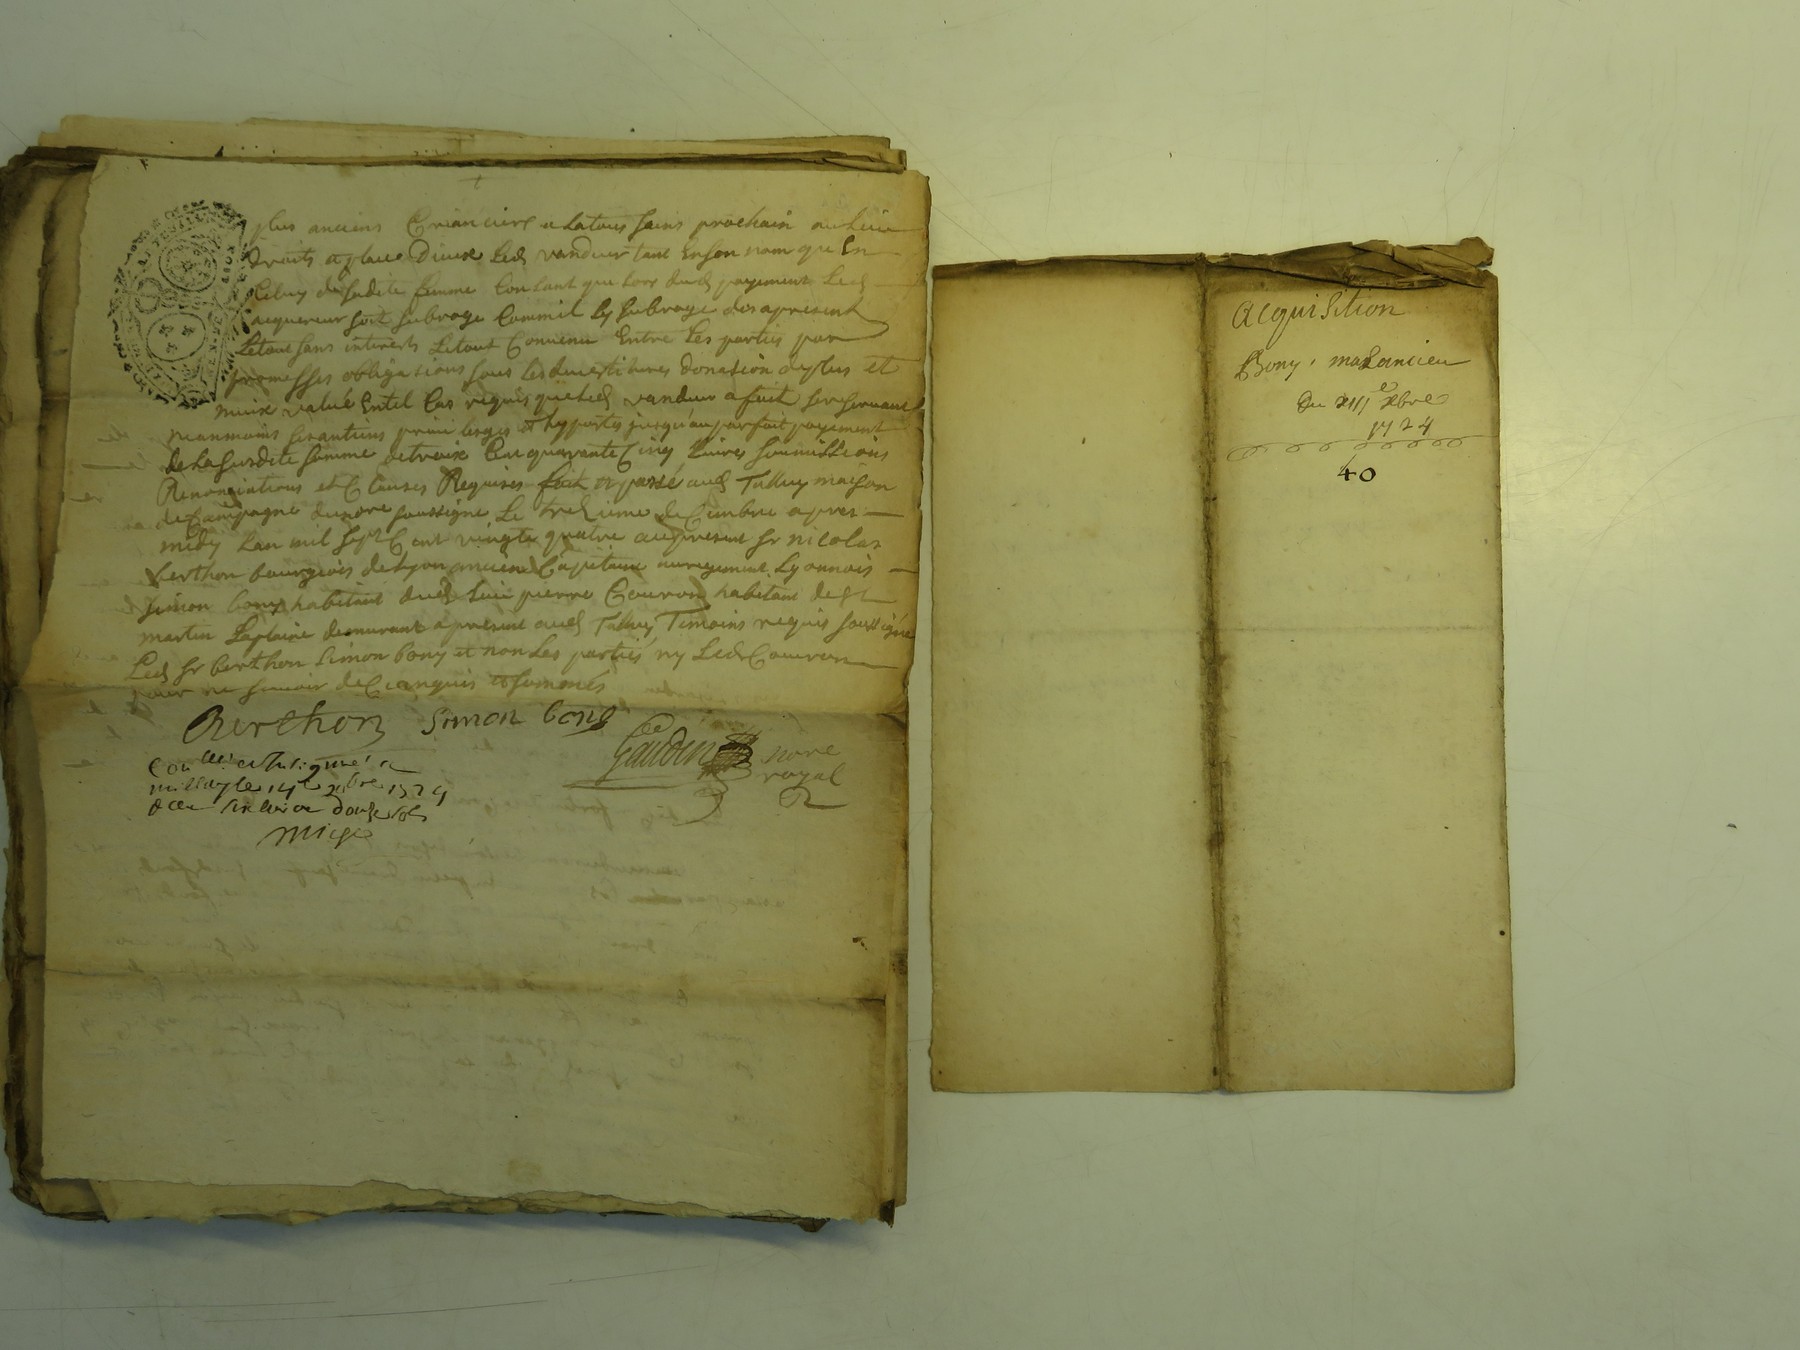 plus anciens Creanciers a latous sains prochain au lieu
droits et place Diceux Led vandeur tant En son nom qu En
Celuy de sadite femme Consant que lors dud payement Led
acquereur soit subroge Comme il ly subroge des apresent
Letout sans interests Letout Convenu Entre Les parties par
promesses obligations sous les donation de plus et
mieux value Entel Cas requis que led vandeur a fait se reservant
neanmoins ses antiens privileges et hypoteques jusqu'au parfait payement
de La susdite somme de trois Cent quarante Cinq livres soumissions
Renonciations et Clauses Requises fait et passé aud Talluy maison
de Campagne du nore soussigne Le treizieme decembre apres
midy Lan mil sept Cent vingte quatre au present sr nicolas
berthon bourgeois de Lyon ancien Capitaine au regiment Lyonnois
simon bony habitant dud lieu pierre Couron habitant de st
martin Laplaine demeurant apresent aud Talluy Temoins requis soussigné
Led sr berthon simon bony et non Les parties ny Led Couron
pour ne scavoir de Ce enquis et sommés
Berthon simon bony
Gaudin nore
royal
Con lle et
le 14e xbre 1724
douze sols
miege
acquisition
Bony . mazancieu
Du xiii e xbre
1724
40